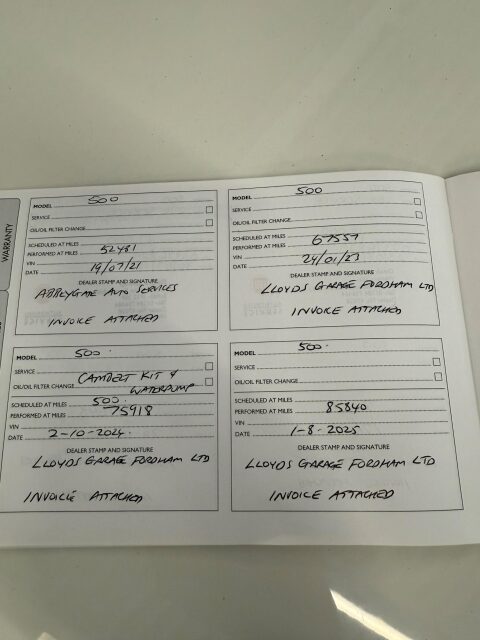 WARRANTY
MODEL 500
SERVICE
OIL/OIL FILTER CHANGE
SCHEDULED AT MILES
PERFORMED AT MILES 52481
VIN
DATE 19/07/21
DEALER STAMP AND SIGNATURE
ABBEYGATE AUTO SERVICES
INVOICE ATTACHED
MODEL 500
SERVICE
OIL/OIL FILTER CHANGE
SCHEDULED AT MILES
PERFORMED AT MILES 67557
VIN
DATE 24/01/23
DEALER STAMP AND SIGNATURE
LLOYDS GARAGE FORDHAM LTD
INVOICE ATTACHED
MODEL 500
SERVICE
CAMBELT KIT &
OIL/OIL FILTER CHANGE WATERPUMP
SCHEDULED AT MILES 500
PERFORMED AT MILES 75918
VIN
DATE 2-10-2024
DEALER STAMP AND SIGNATURE
LLOYDS GARAGE FORDHAM LTD
INVOICE ATTACHED
MODEL 500
SERVICE
OIL/OIL FILTER CHANGE
SCHEDULED AT MILES
PERFORMED AT MILES 85840
VIN
DATE 1-8-2025
DEALER STAMP AND SIGNATURE
LLOYDS GARAGE FORDHAM LTD
INVOICE ATTACHED